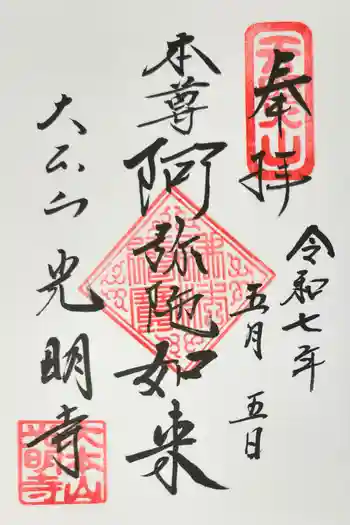 奉拝
令和七年
五月五日
本尊
阿弥陀如来
大本山
光明寺
大本山
光明寺